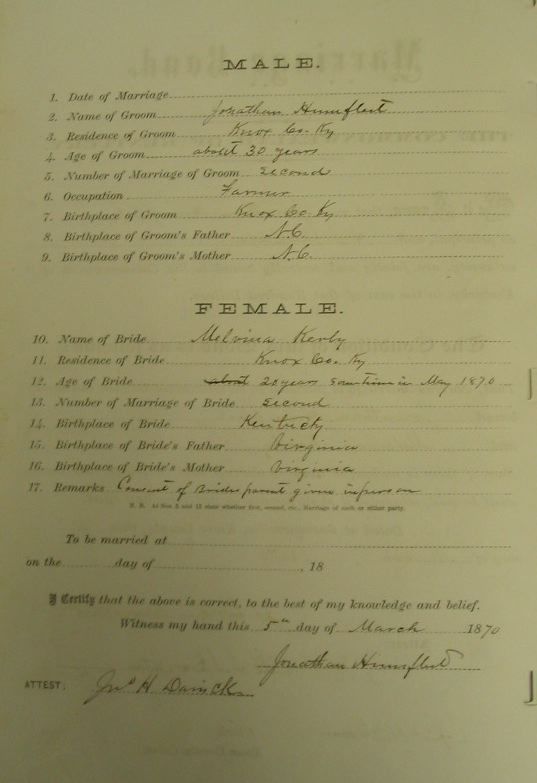 MALE.
1. Date of Marriage
2. Name of Groom Jonathan Humfleet
3. Residence of Groom Knox Co. Ky
4. Age of Groom about 30 years
5. Number of Marriage of Groom Second
6. Occupation Farmer
7. Birthplace of Groom Knox Co. Ky
8. Birthplace of Groom's Father N.C.
9. Birthplace of Groom's Mother N.C.
FEMALE.
10. Name of Bride Melvina Kerby
11. Residence of Bride Knox Co. Ky
12. Age of Bride about 20 years Sometime in May 1870
13. Number of Marriage of Bride Second
14. Birthplace of Bride Kentucky
15. Birthplace of Bride's Father Virginia
16. Birthplace of Bride's Mother Virginia
17. Remarks Consent of Brides parent given in person
N. B. At Nos 5 and 13 state whether first, second, etc., Marriage of each or either party.
To be married at
on the day of , 18
I Certify that the above is correct, to the best of my knowledge and belief.
Witness my hand this 5th day of March 1870
Jonathan Humfleet
ATTEST: Jno H